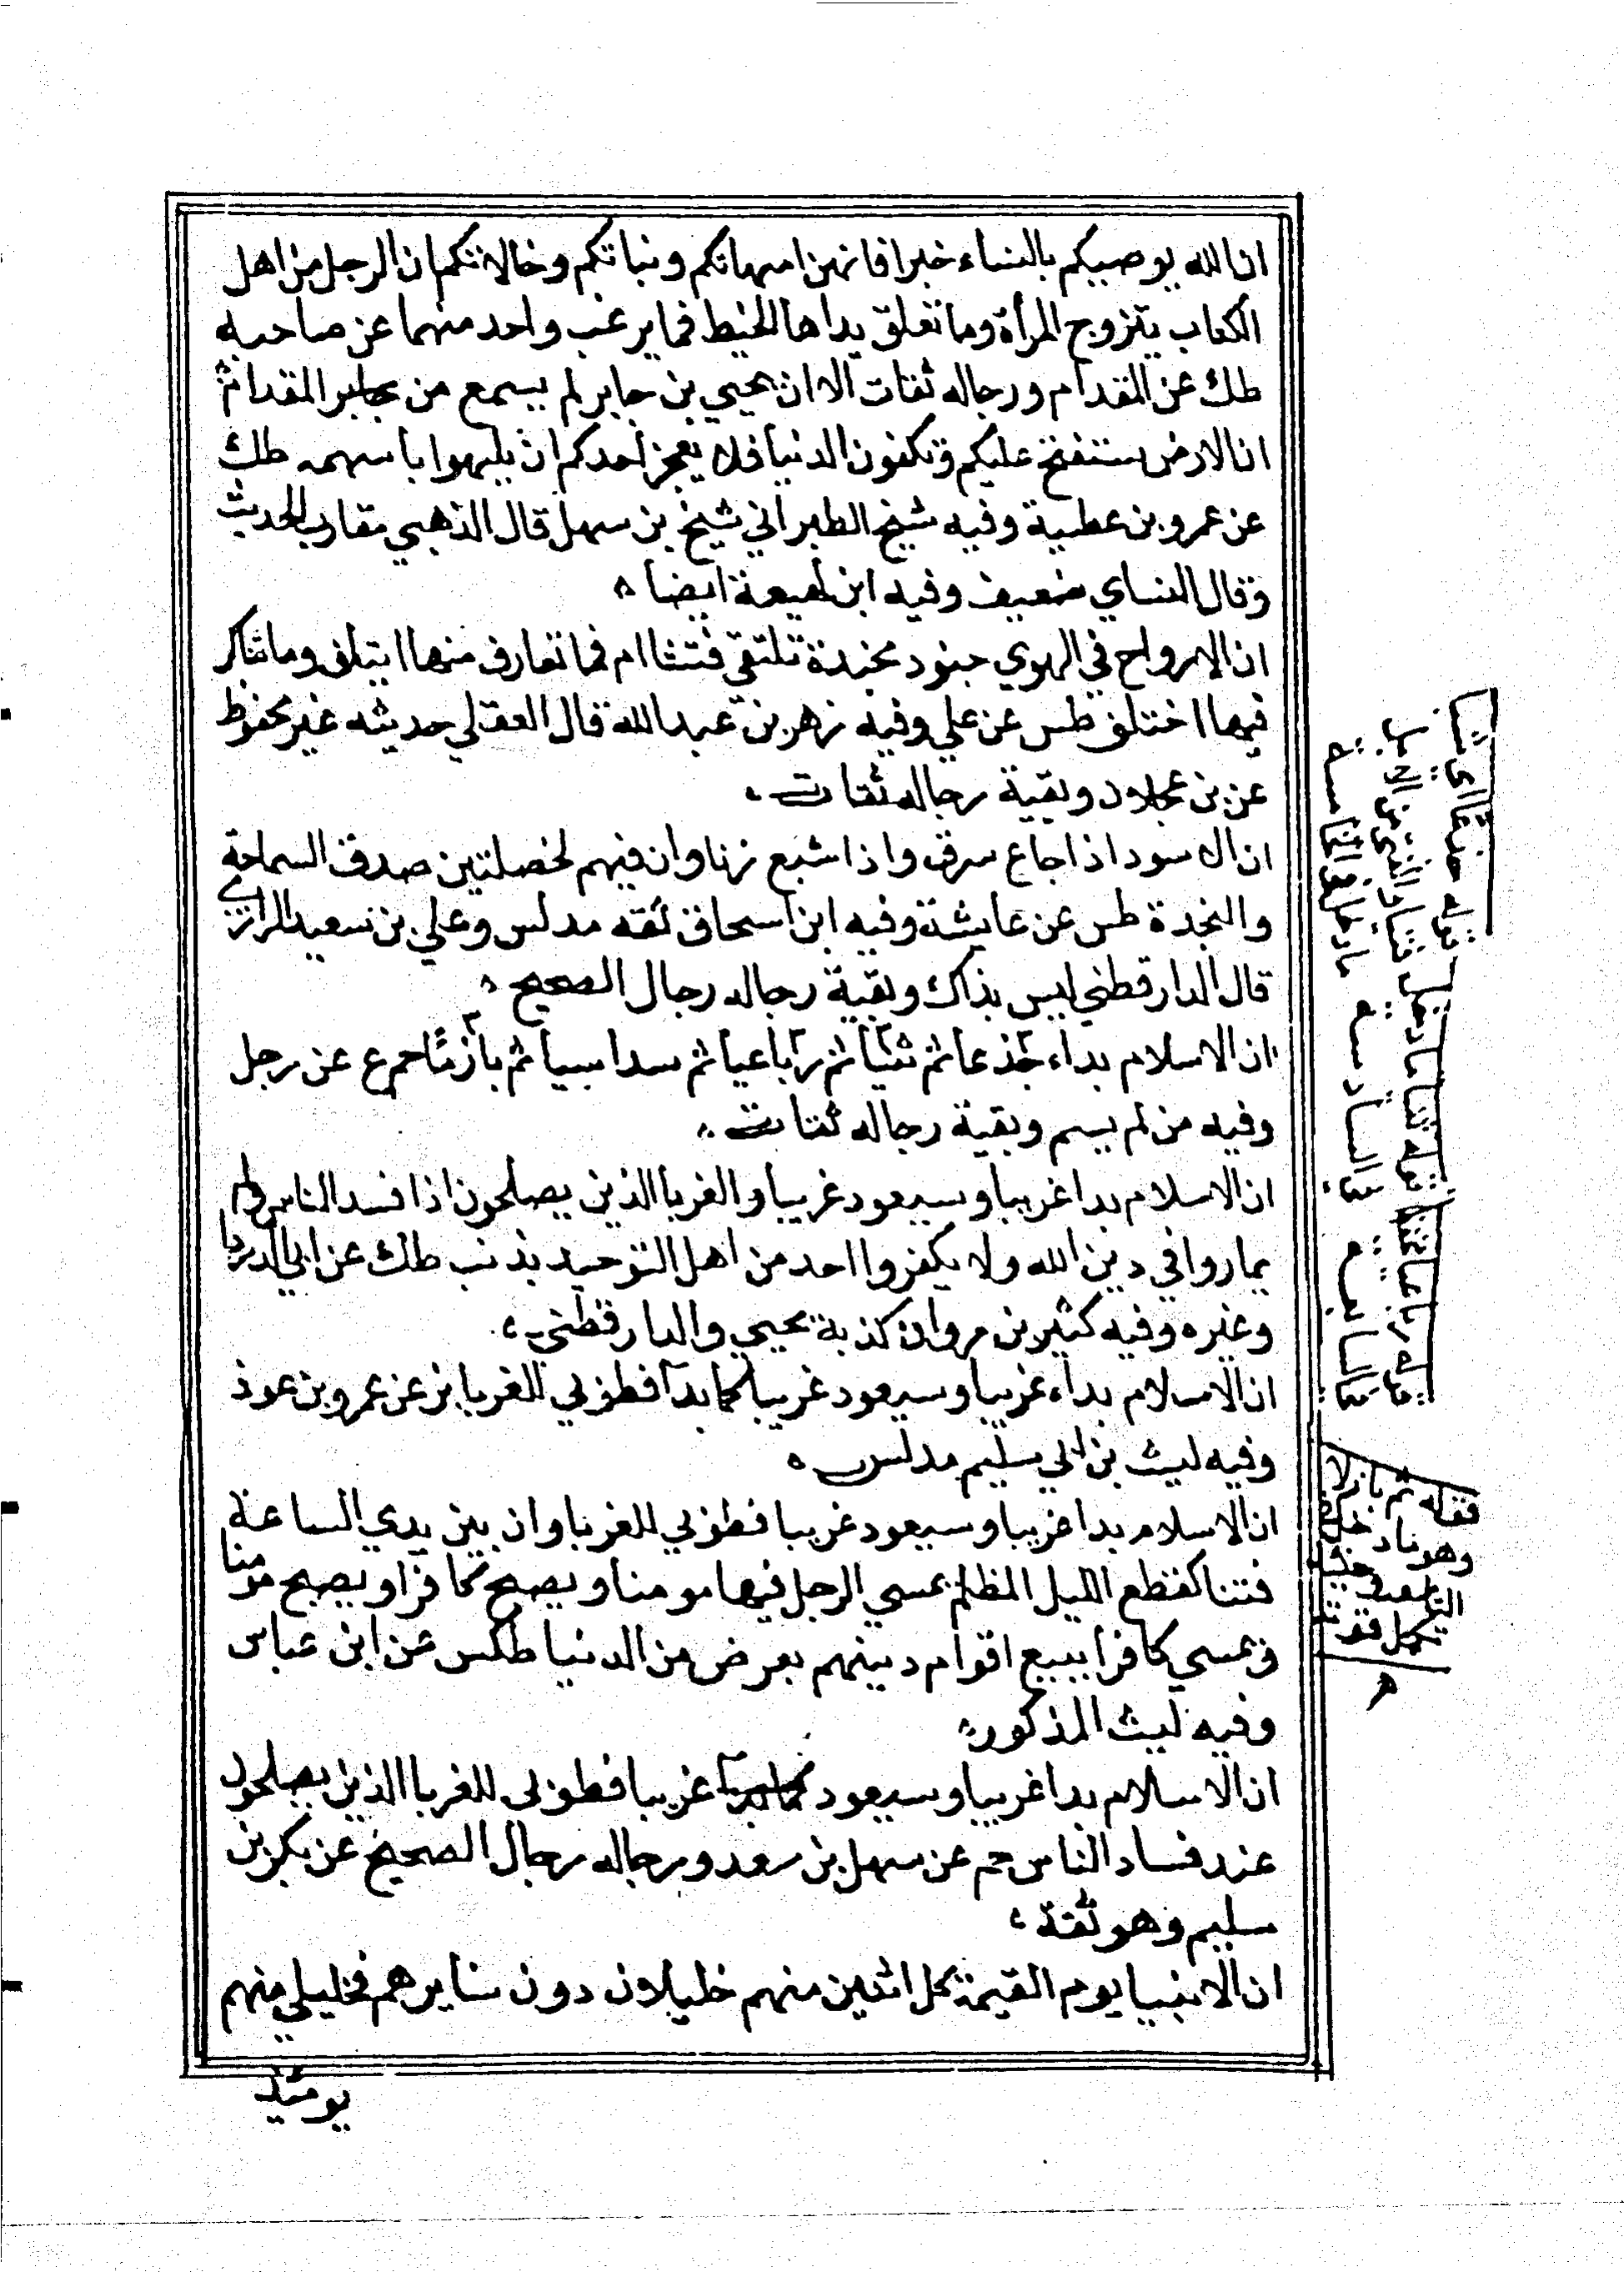 ان الله يوصيكم بالنساء خيرا فانهن امهاتكم وبناتكم وخالاتكم ان الرجل من اهل
الكتاب يتزوج المرأة وما تعلق يداها الخيط فما يرغب واحد منهما عن صاحبه
طك عن المقدام ورجاله ثقات الا ان يحيي بن جابر لم يسمع من المقدام
ان الارض ستفتح عليكم وتكفون الدنيا فلا يعجز احدكم ان يلهوا باسهمه طك
عن عمرو بن عطية وفيه شيخ الطبراني شيخ بن سهل قال الذهبي مقارب الحديث
وقال النساي ضعيف وفيه ابن لهيعة ايضا
ان الارواح في الهوي جنود مجندة تلتقي فتشاام فما تعارف منها ايتلف وما تناكر
فيها اختلف طس عن علي وفيه زهر بن عبد الله قال العقلي حديثه غير محفوظ
عن بن عجلان وبقية رجاله ثقات
ان ال سود اذا جاع سرق واذا شبع زنا وان فيهم لخصلتين صدق السماحة
والنجدة طس عن عايشة وفيه ابن اسحاق ثقه مدلس وعلي بن سعيد الرازي
قال الدارقطني ليس بذاك وبقية رجاله رجال الصحيح
ان الاسلام بداء جذعا ثم ثنيا ثم رباعيا ثم سداسيا ثم بازلا حم ع عن رجل
وفيه من لم يسم وبقية رجاله ثقات
ان الاسلام بدا غريبا وسيعود غريبا و الغربا الذين يصلحون اذا فسد الناس ولم
يماروا في دين الله ولا يكفروا احد من اهل التوحيد بذنب طك عن ابي الدردا
وغيره وفيه كثير بن مروان كذبة يحيي والدارقطني
ان الاسلام بداء غريبا وسيعود غريبا كما بدآ فطوبي للغربا بز عن عمرو بن عوذ
وفيه ليث بن ابي سليم مدلس
ان الاسلام بدا غريبا وسيعود غريبا فطوبي للغربا وان بين يدي الساعة
فتنا كقطع الليل المظلم يمسي الرجل فيها مومنا ويصبح كافرا ويصبح مومنا
ويمسي كافرا يبيع اقوام دينهم بعرض من الدنيا طكس عن ابن عباس
وفيه ليث المذكور
ان الاسلام بدا غريبا وسيعود كما بدآ غريبا فطوبي للغربا الذين يصلحون
عند فساد الناس حم عن سهل بن سعد ورجاله رجال الصحيح عن بكر بن
سليم وهو ثقة
ان الانبيا يوم القيمة كل اثنين منهم خليلان دون سايرهم فخليلي منهم
يوميذ
قوله ثنيا ما دخل
في السادسة
قوله رباعيا
في السابعة
قوله ثم بازلا
وهو ما دخل في
التاسعة
تكمل قوته